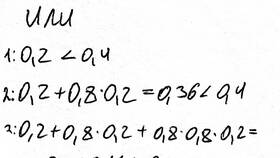 или
1: 0,2 < 0,4
2: 0,2 + 0,8·0,2 = 0,36 < 0,4
3: 0,2 + 0,8·0,2 + 0,8·0,8·0,2 =